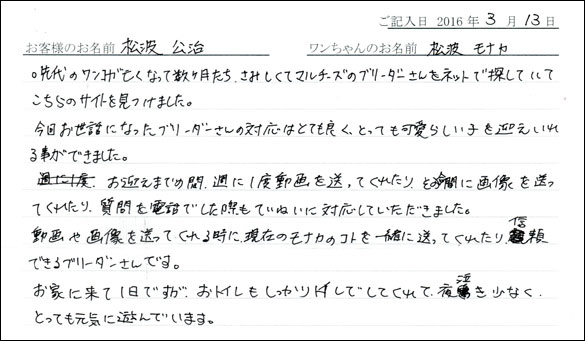 ご記入日 2016年 3月 13日
お客様のお名前 松波 公治 ワンちゃんのお名前 松波 モナカ
。先代のワンコが亡くなって数ヶ月たち、さみしくてマルチーズのブリーダーさんをネットで探していて
こちらのサイトを見つけました。
今回お世話になったブリーダーさんの対応はとても良く、とっても可愛らしい子を迎えいれ
る事ができました。
お迎えまでの間、週に1度動画を送ってくれたり、に画像を送っ
てくれたり、質問を電話でした際もていねいに対応していただきました。
動画や画像を送ってくれる時に、現在のモナカのコトを一緒に送ってくれたり、信頼
できるブリーダーさんです。
お家に来て1日ですが、おトイレもしっかりシートでしてくれて、夜泣き少なく、
とっても元気に遊んでいます。